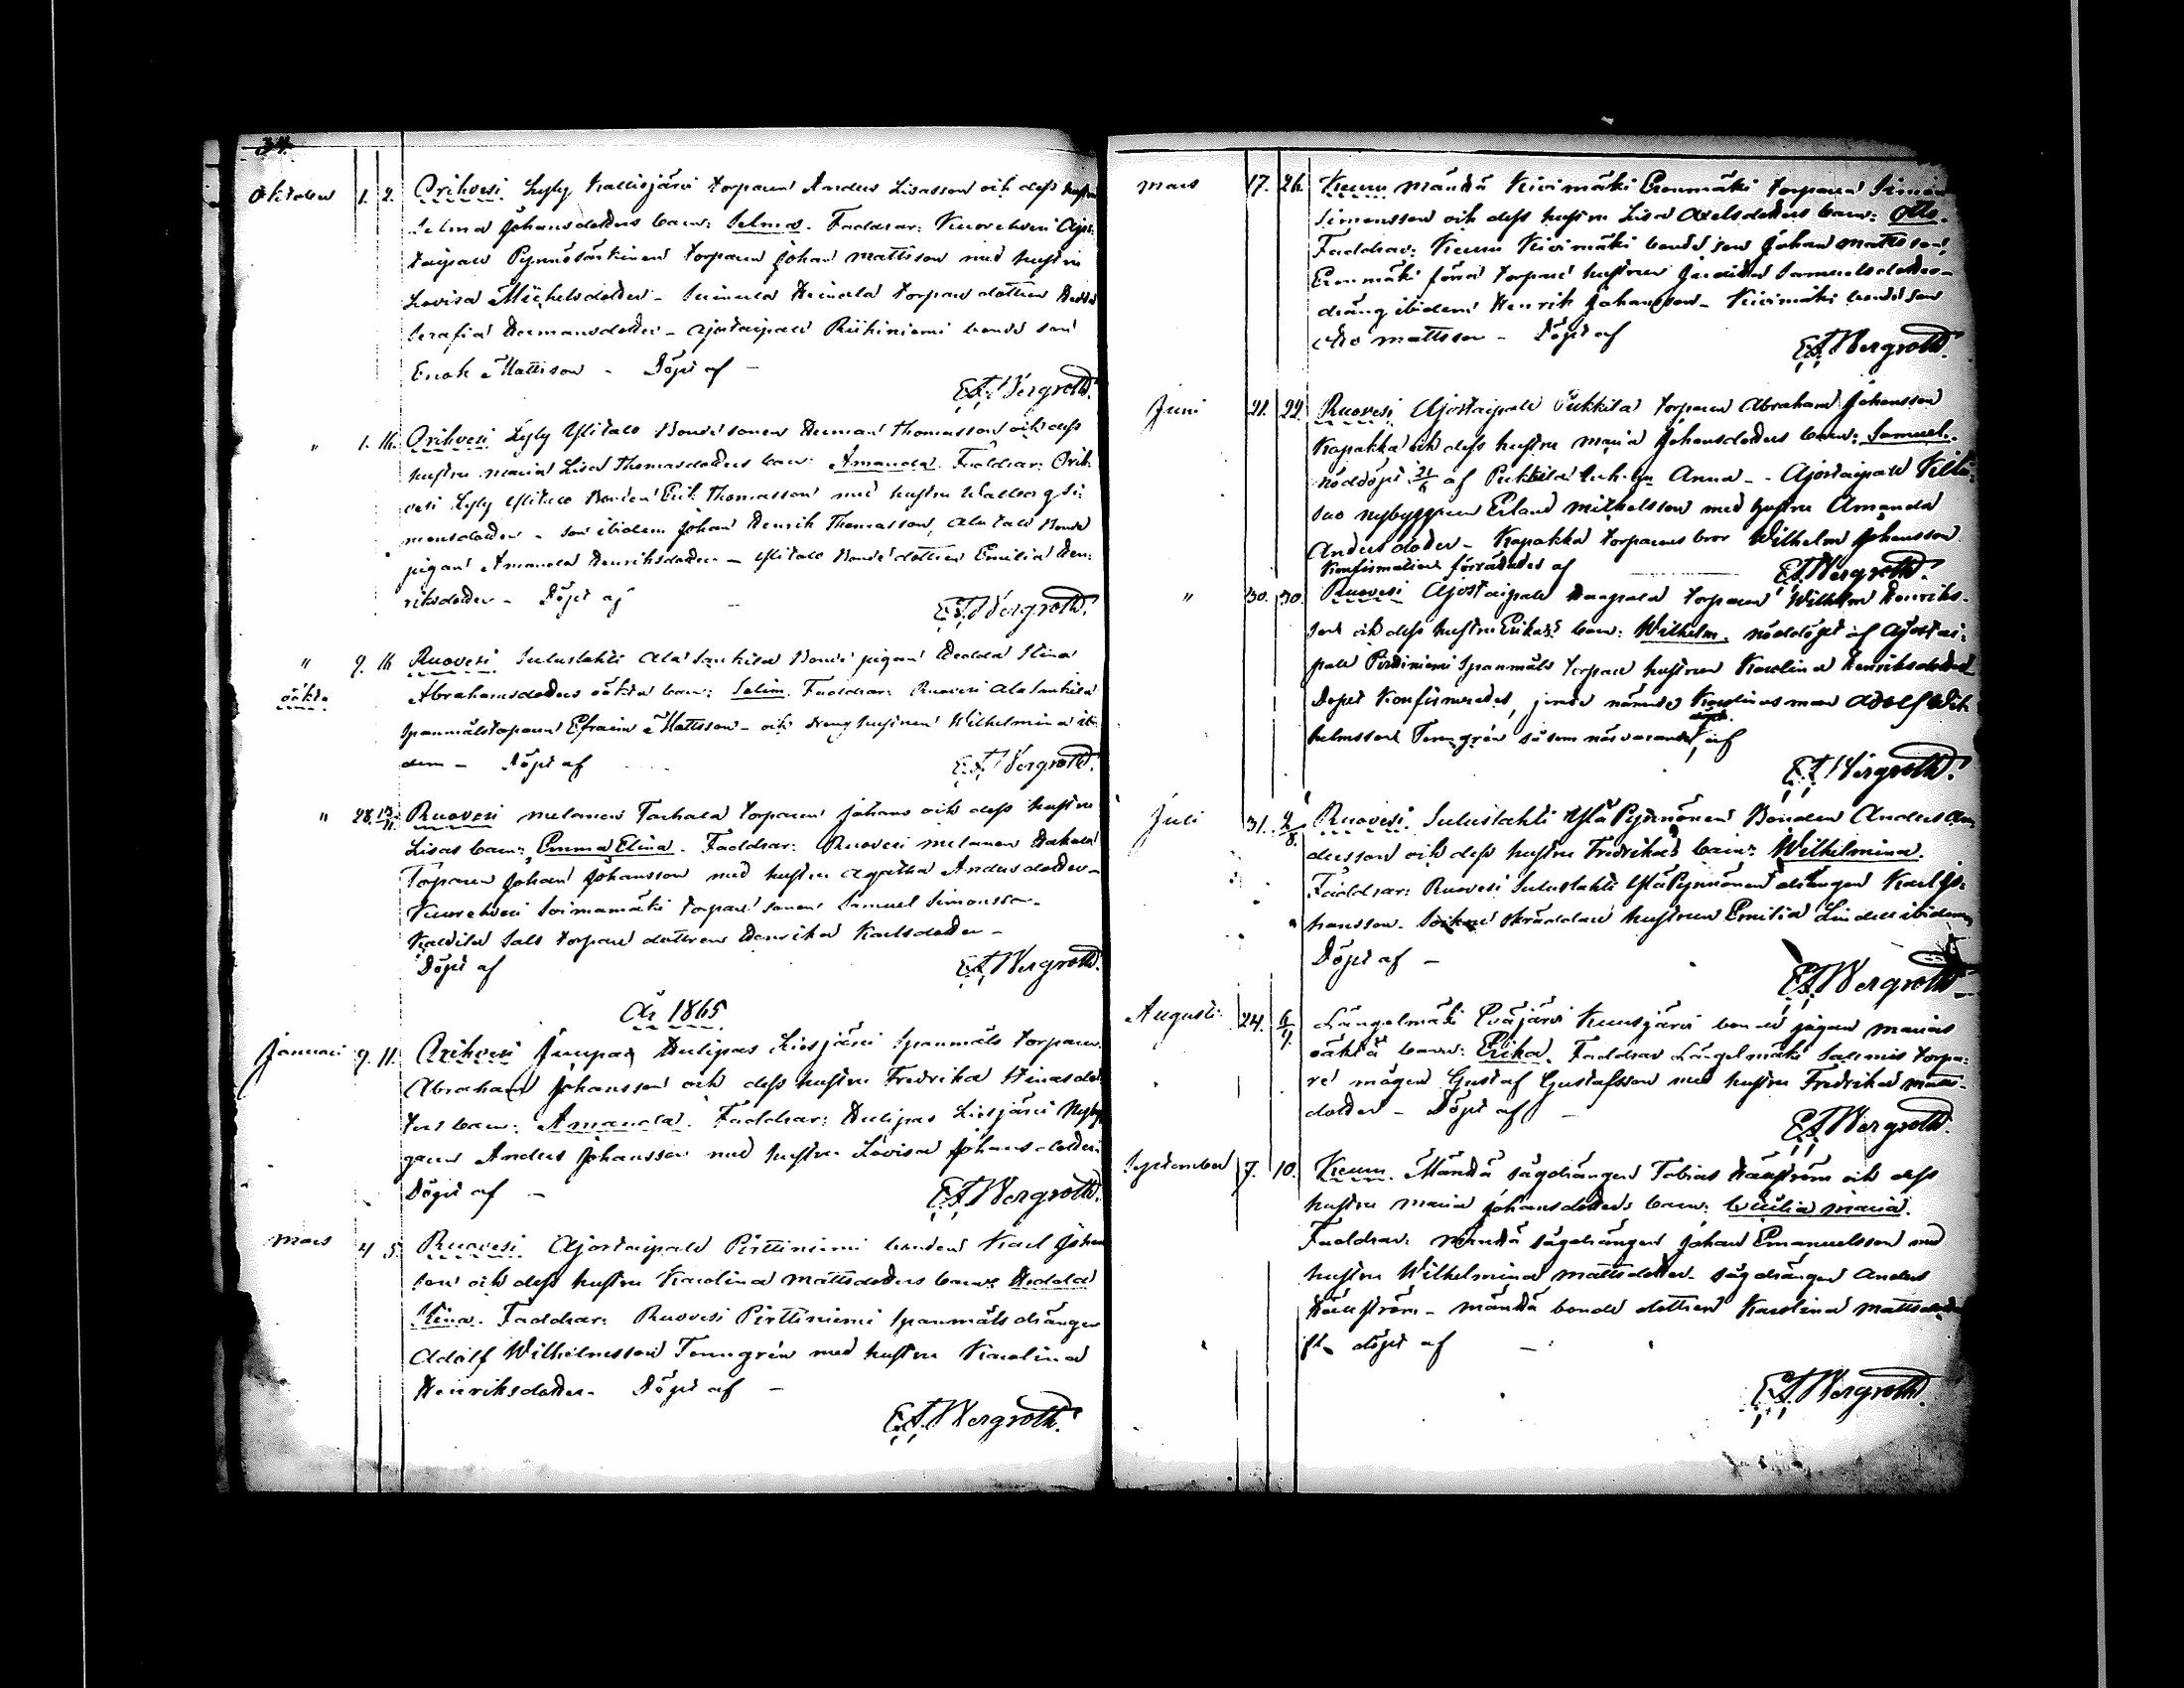 34.
Oktober 1. 2. Orihvesi Lyly Kallisjärvi torparen Anders Lisasson och dess hustru
Selma Johansdotters barn: Selma. Faddrar: Kuorehvesi Ajos-
taipale torparen Johan Mattsson med hustru
Lovisa Michelsdotter - torpare dottren Hedda
Serafia Hermansdotter - Ajostaipale Riihiniemi bonde son
Enok Mattsson - Döpt af -
E. A. Bergroth.
" 1. 16. Orihvesi Lyly Ylitalo Bonde sonen Herman Thomasson och dess
hustru Maria Lisa Thomasdotters barn: Amanda. Faddrar: Orih-
vesi Lyly Ylitalo Bonden Erik Thomasson med hustru Walborg Si-
monsdotter - son ibidem Johan Henrik Thomasson, Alatalo Bonde
pigan Amanda Henriksdotter - Ylitalo Bonde dottren Emilia Hen-
riksdotter - Döpt af -
E. A. Bergroth.
" 9. 16 Ruovesi Suluslahti Ala Sankila Bonde pigan Hedda Stina
oäkta Abrahamsdotters oäkta barn: Selim. Faddrar: Ruovesi Ala Sankila
Spanmålstorparen Efraim Mattsson - och dreng hustrun Wilhelmina ibi-
dem - Döpt af
E. A. Bergroth.
" 28. 13/11. Ruovesi Melanen Torhala torparen Johans och dess hustru
Lisas barn: Emma Elina. Faddrar: Ruovesi Melanen
Torparen Johan Johansson med hustru Agatha Andersdotter -
Kuorehvesi Soimamäki torpare sonen Samuel Simonsson -
Salo torpare dottren Henrika Karlsdotter -
Döpt af E. A. Bergroth.
År 1865
Januari 9. 11. Orihvesi Juupajoki Hulipas Liesjärvi Spanmåls torparen
Abraham Johansson och dess hustru Fredrika Stinasdot-
ters barn: Amanda. Faddrar: Hulipas Liesjärvi Nybyg-
garen Anders Johansson med hustru Lovisa Johansdotter
Döpt af - E. A. Bergroth.
Mars 4 5. Ruovesi Ajostaipale Pirttiniemi bonden Karl Johans-
son och dess hustru Karolina Mattsdotters barn: Hedda
Stina. Faddrar: Ruovesi Pirttiniemi Spanmåls drängen
Adolf Wilhelmsson Tenngrén med hustru Karolina
Henriksdotter - Döpt af -
E. A. Bergroth.
Mars 17. 26. Keuru Mänttä Kivimäki Eronmäki torparen Simon
Simonsson och dess hustru Lisa Axelsdotters barn: Otto.
Faddrar: Keuru Kivimäki bonde son Johan Mattsson,
Eronmäki förra torpare hustrun Juditha Samuelsdotter -
dräng ibidem Henrik Johansson - Kivimäki bonde son
Mattsson - Döpt af
E. A. Bergroth.
Juni 21. 22. Ruovesi Ajostaipale Pukkila torparen Abraham Johansson
Kapakka och dess hustru Maria Johansdotters barn: Samuel.
nöddöpt 21/6 af Pukkila Anna - Ajostaipale
suo nybyggaren Erland Michelsson med hustru Amanda
Andersdotter - Kapakka torparens bror Wilhelm Johansson.
Konfirmation förrättades af E. A. Bergroth.
" 30. 30. Ruovesi Ajostaipale Haapala torparen Wilhelm Henriks-
son och dess hustru Erikas barn: Wilhelm. nöddöpt af Ajostai-
pale Pirttiniemi Spanmåls torpare hustrun Karolina Henriksdotter
Dopet Konfirmerades, jemte nämnde Karolinas man Adolf Wil-
helmsson Tenngrén såsom närvarande, af
E. A. Bergroth.
Juli 31. 2/8. Ruovesi. Suluslahti Ylä Pynnönen Bonden Anders An-
dersson och dess hustru Fredrikas barn: Wilhelmina.
Faddrar: Ruovesi Suluslahti Ylä Pynnönen drängen Karl Jo-
hansson. Socken skräddare hustrun Emilia Lindell ibidem
Döpt af -
E. A. Bergroth
Augusti 24. 6/9. Längelmäki Eväjärvi Kuusjärvi bonde pigan Marias
oäkta barn: Erika. Faddrar Längelmäki torpa-
re mågen Gustaf Gustafsson med hustru Fredrika Matts-
dotter - Döpt af -
E. A. Bergroth.
September 7. 10. Keuru. Mänttä sågdrängen Tobias och dess
hustru Maria Johansdotters barn: Cecilia Maria.
Faddrar: Mänttä sågdrängen Johan Emanuelsson med
hustru Wilhelmina Mattsdotter - sågdrängen Anders
- Mänttä bonde dottren Karolina Mattsdotter
döpt af -
E. A. Bergroth.